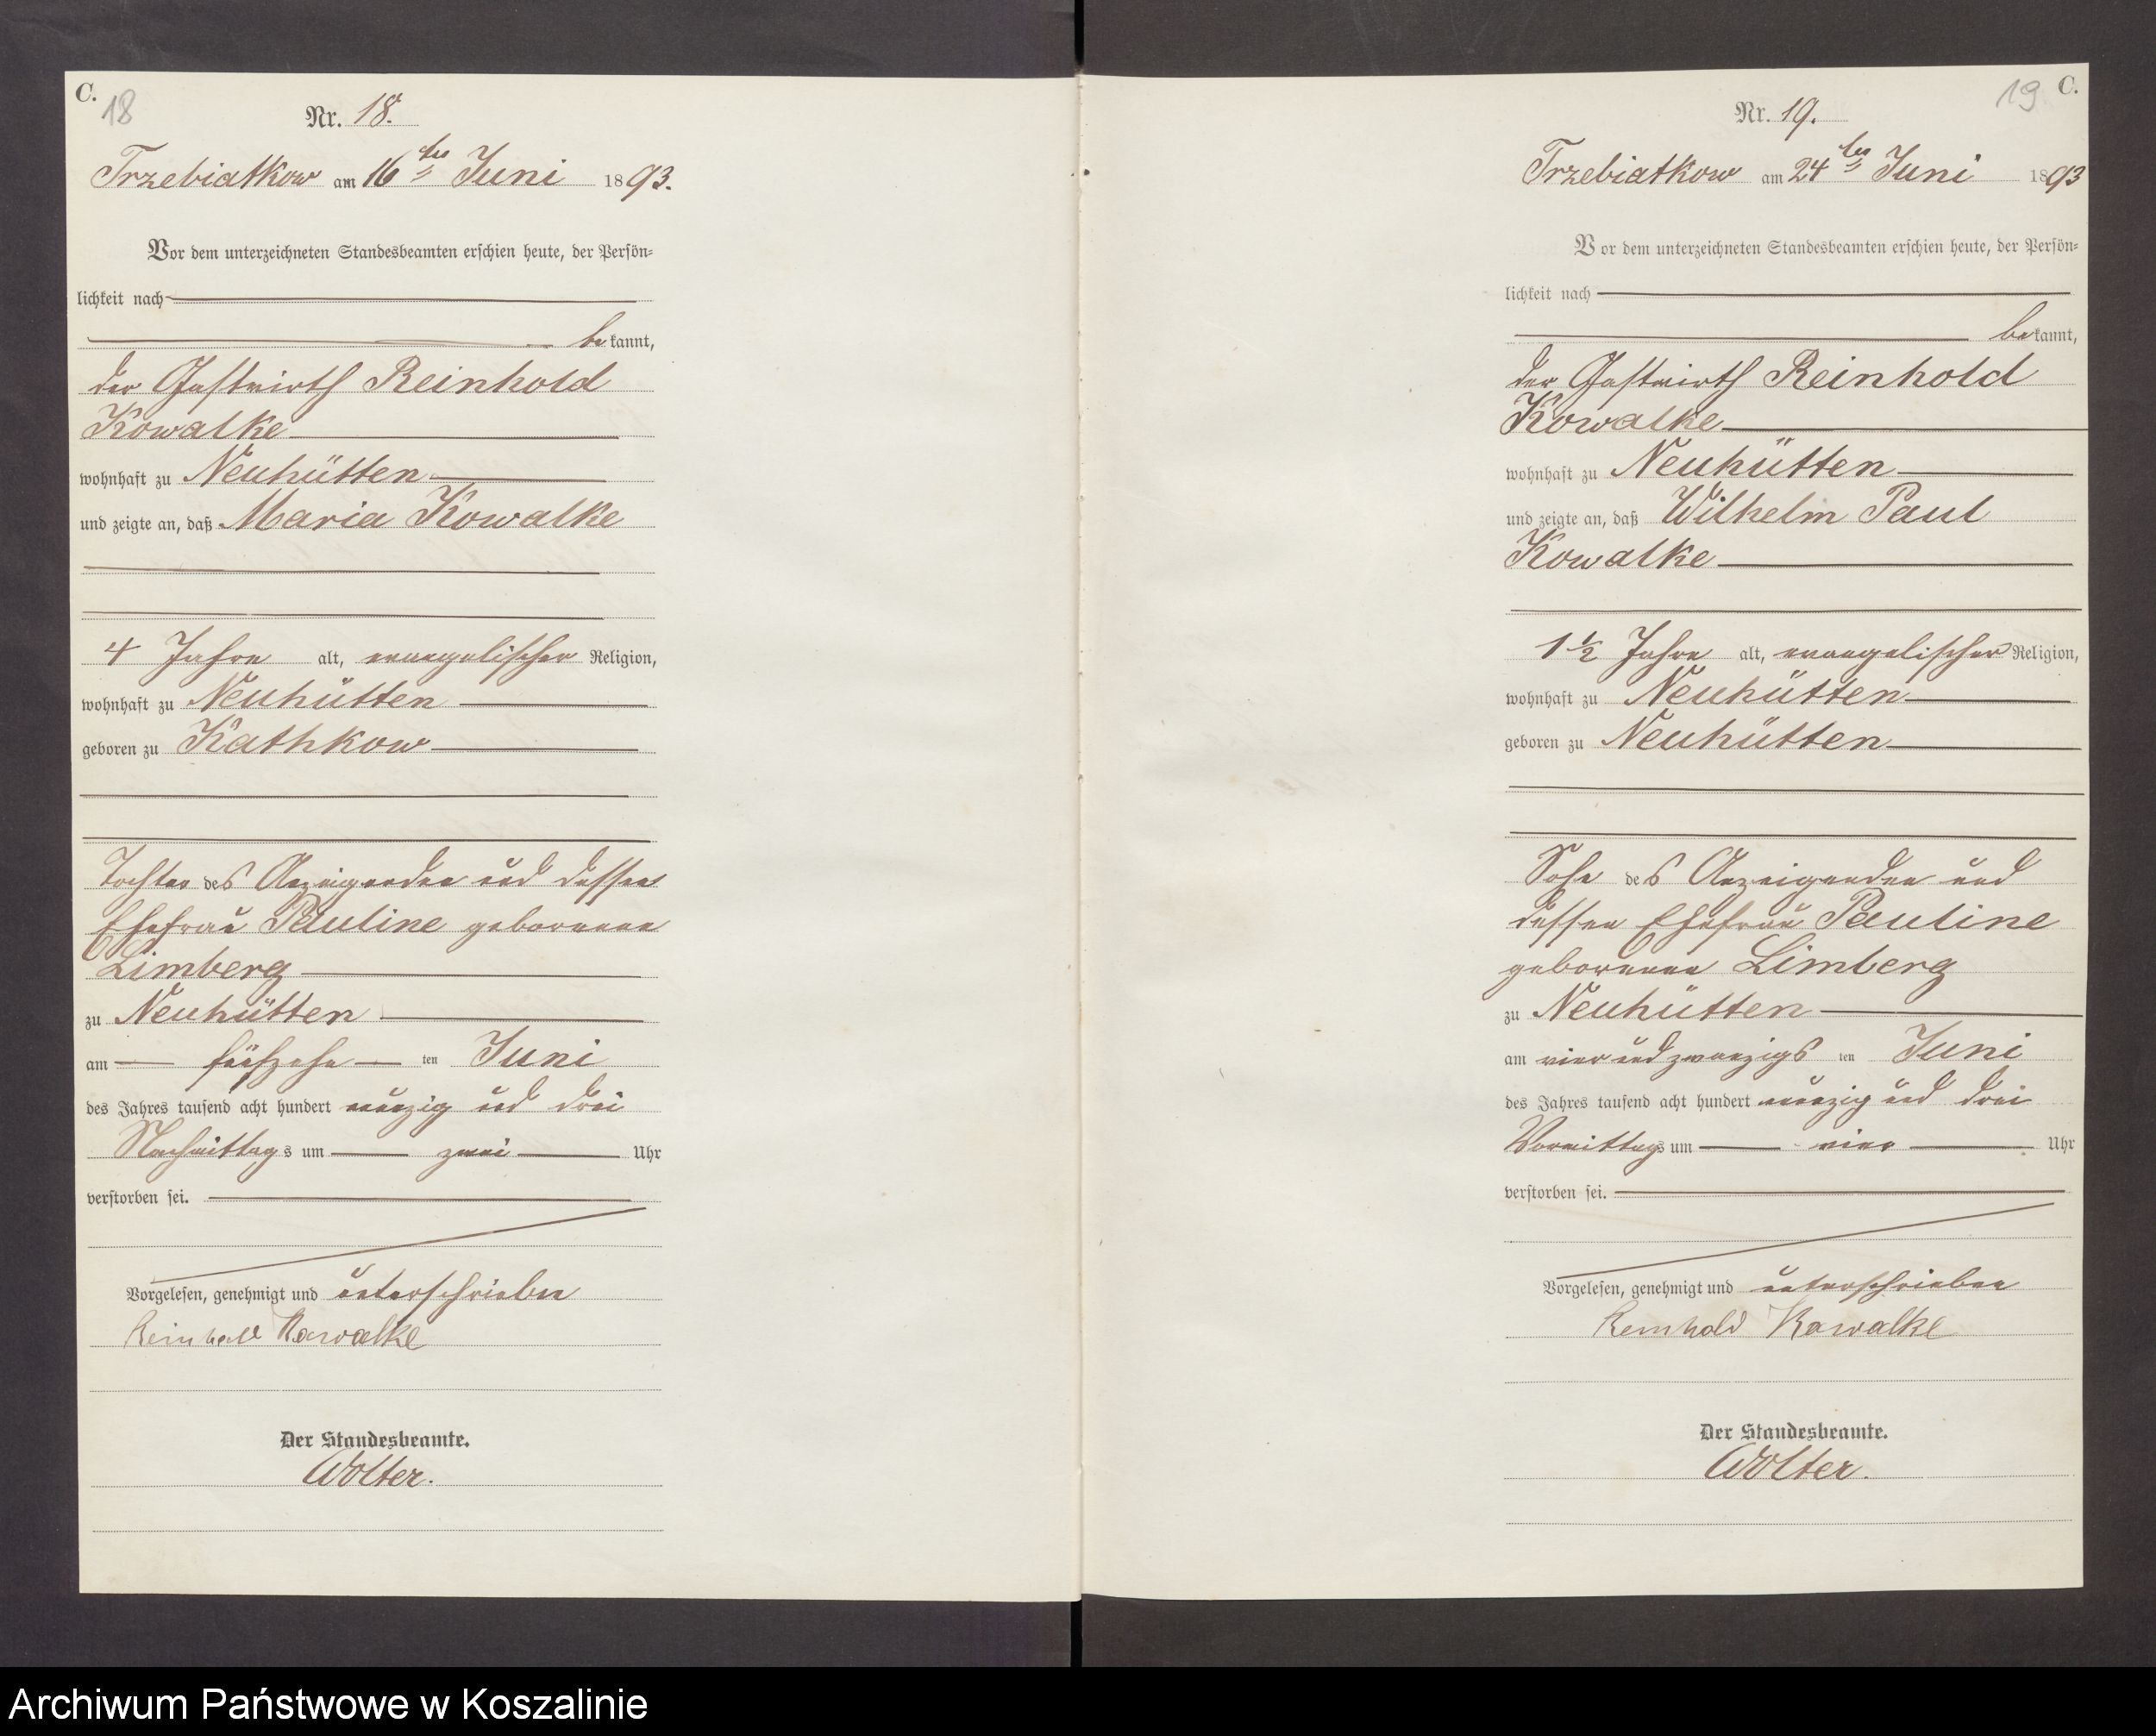 C.
18
Nr. 18.
Trzebiatkow am 16ten Juni 1893.
Vor dem unterzeichneten Standesbeamten erschien heute, der Persön-
lichkeit nach
bekannt,
der Gastwirth Reinhold
Kowalke
wohnhaft zu Neuhütten
und zeigte an, daß Maria Kowalke
4 Jahre alt, evangelischer Religion,
wohnhaft zu Neuhütten
geboren zu Kathkow
Tochter des Anzeigenden und dessen
Ehefrau Pauline geborenen
Limberg
zu Neuhütten
am fünfzehn ten Juni
des Jahres tausend acht hundert neunzig und drei
Nachmittags um zwei Uhr
verstorben sei.
Vorgelesen, genehmigt und unterschrieben
Reinhold Kowalke
Der Standesbeamte.
Wolter.
19 C.
Nr. 19.
Trzebiatkow am 24ten Juni 1893
Vor dem unterzeichneten Standesbeamten erschien heute, der Persön-
lichkeit nach
bekannt,
der Gastwirth Reinhold
Kowalke
wohnhaft zu Neuhütten
und zeigte an, daß Wilhelm Paul
Kowalke
1 1/2 Jahre alt, evangelischer Religion,
wohnhaft zu Neuhütten
geboren zu Neuhütten
Sohn des Anzeigenden und
dessen Ehefrau Pauline
geborenen Limberg
zu Neuhütten
am vier und zwanzigs ten Juni
des Jahres tausend acht hundert neunzig und drei
Vormittags um vier Uhr
verstorben sei.
Vorgelesen, genehmigt und unterschrieben
Reinhold Kawalke
Der Standesbeamte.
Wolter.
Archiwum Państwowe w Koszalinie